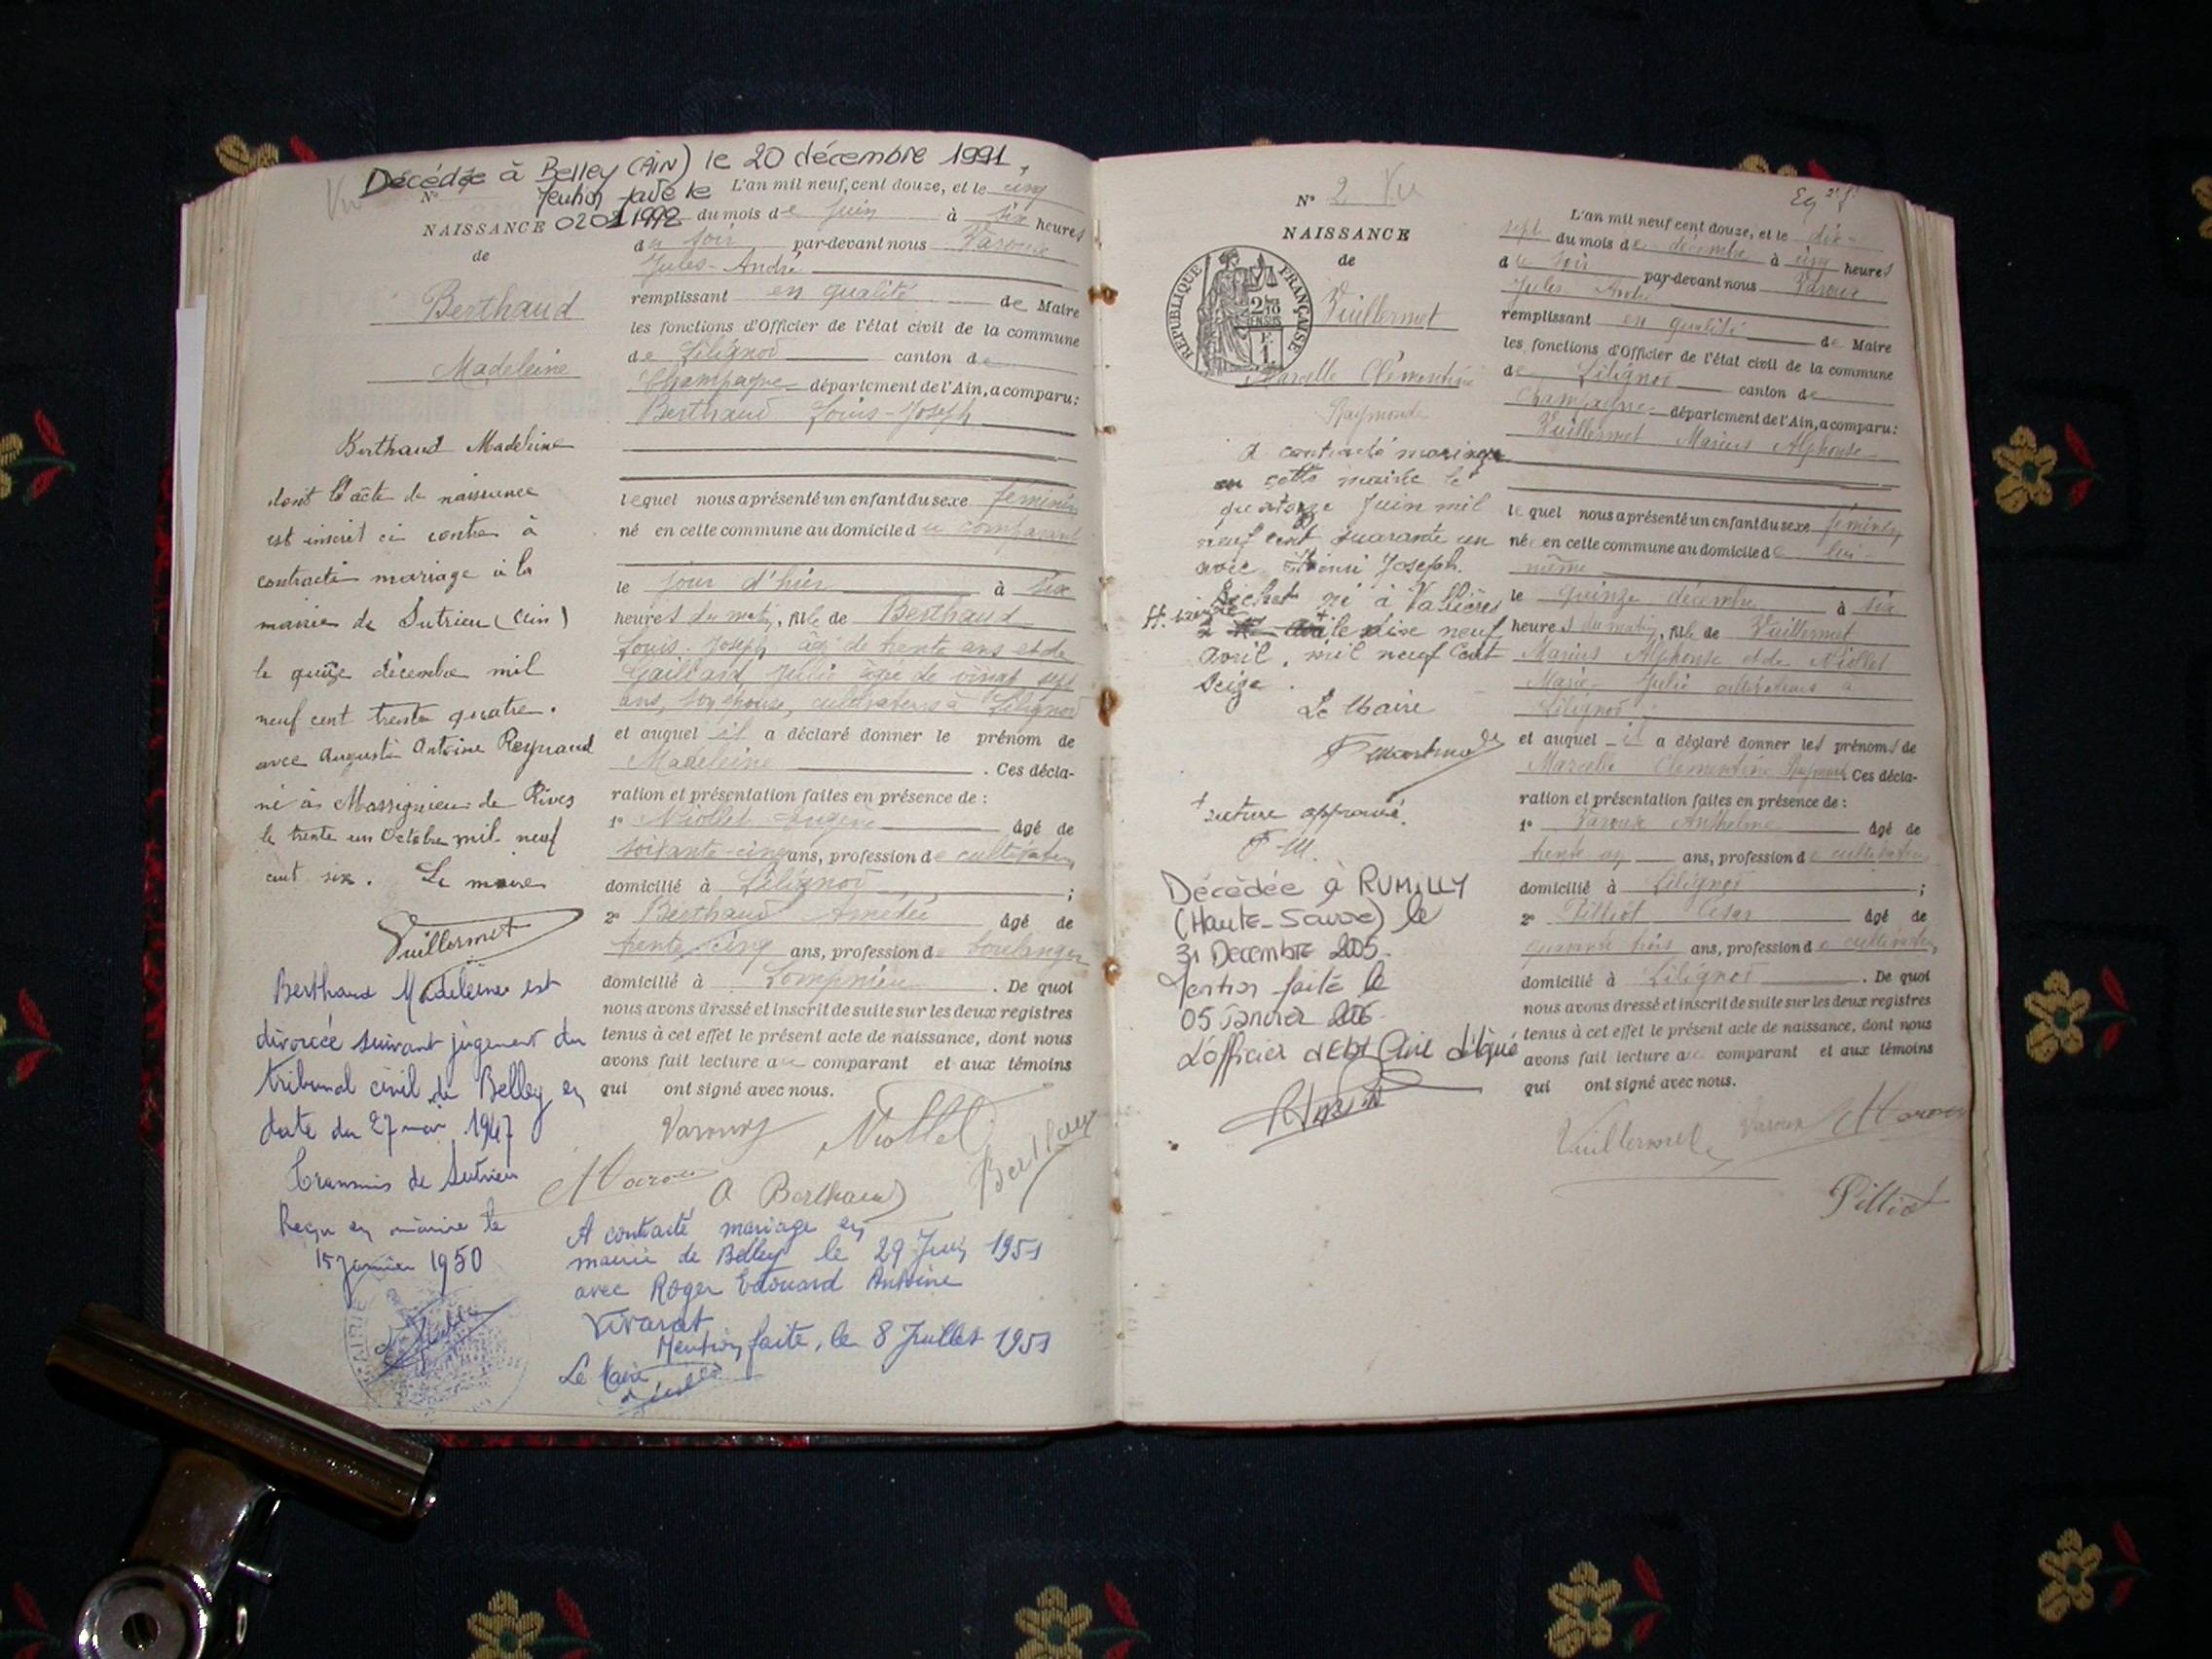 Décédée à Belley (AIN) le 20 décembre 1991.
N°
NAISSANCE
de
Berthaud
Madeleine
Berthaud Madeleine
dont l'acte de naissance
est inscrit ci contre à
contracté mariage à la
mairie de Sutrieu (Ain)
le quinze décembre mil
neuf cent trente quatre.
avec Auguste Antoine Reynaud
né à Massignieu de Rives
le trente un Octobre mil neuf
cent six. Le maire
Vuillermet
Berthaud Madeleine est
divorcée suivant jugement du
tribunal civil de Belley en
date du 27 mai 1947
Transmis de Sutrieu
Reçu en mairie le
15 janvier 1950
L'an mil neuf cent douze, et le cinq
du mois de Juin à six heures
du soir par-devant nous Varoux
Jules-André
remplissant en qualité de Maire
les fonctions d'Officier de l'état civil de la commune
de Lilignod canton de
Champagne département de l'Ain, a comparu:
Berthaud Louis-Joseph
lequel nous a présenté un enfant du sexe féminin
né en celle commune au domicile du comparant
le jour d'hier à six
heures du matin, fille de Berthaud
Louis-Joseph âgé de trente ans et de
Gaillard Julie âgée de vingt sept
ans, son épouse, cultivateurs à Lilignod
et auquel il a déclaré donner le prénom de
Madeleine . Ces décla-
ration et présentation faites en présence de :
1° Niollet Eugène âgé de
soixante-cinq ans, profession de cultivateur
domicilié à Lilignod ;
2° Berthaud Amédée âgé de
trente-cinq ans, profession de boulanger
domicilié à Lompnieu . De quoi
nous avons dressé et inscrit de suite sur les deux registres
tenus à cet effet le présent acte de naissance, dont nous
avons fait lecture au comparant et aux témoins
qui ont signé avec nous.
Varoux Niollet
A Berthaud
A contracté mariage en
mairie de Belley le 29 Juin 1951
avec Roger Edouard Antoine
Vivarat
Mention faite, le 8 Juillet 1951
Le Maire
N° 2 Vu
NAISSANCE
de
RÉPUBLIQUE FRANÇAISE
Vuillermet
Marcelle Clémentine
Raymonde
A contracté mariage
en cette mairie le
quatorze Juin mil
neuf cent quarante un
avec Henri Joseph
né à Vallières
le dix neuf
avril, mil neuf cent
seize.
Le Maire
rature approuvé.
F. M.
Décédée à RUMILLY
(Haute-Savoie) le
31 Décembre 2005.
Mention faite le
05 Janvier 2006
L'officier d'Etat Civil délégué
L'an mil neuf cent douze, et le dix-
sept du mois de décembre à cinq heures
du soir par-devant nous Varoux
Jules André
remplissant en qualité de Maire
les fonctions d'Officier de l'état civil de la commune
de Lilignod canton de
Champagne département de l'Ain, a comparu:
Vuillermet Marius Alphonse
lequel nous a présenté un enfant du sexe féminin
née en celle commune au domicile de lui-
même
le quinze décembre à six
heures du matin, fille de Vuillermet
Marius Alphonse et de Niollet
Marie-Julie cultivateurs à
Lilignod
et auquel il a déclaré donner les prénoms de
Marcelle Clémentine Raymonde Ces décla-
ration et présentation faites en présence de :
1° Varoux Anthelme âgé de
trente ans, profession de cultivateur
domicilié à Lilignod ;
2° Pilliot César âgé de
quarante trois ans, profession de cultivateur,
domicilié à Lilignod . De quoi
nous avons dressé et inscrit de suite sur les deux registres
tenus à cet effet le présent acte de naissance, dont nous
avons fait lecture au comparant et aux témoins
qui ont signé avec nous.
Vuillermet Varoux
Pilliot